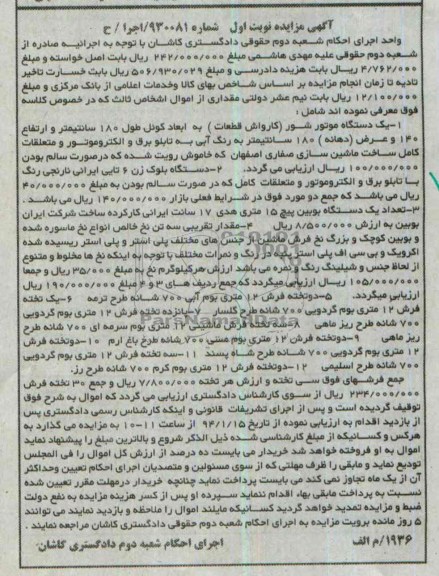 آگهی مزایده نوبت اول شماره ۹۳۰۰۸۱/اجرا / ح
واحد اجرای احکام شعبه دوم حقوقی دادگستری کاشان با توجه به اجرائیه صادره از
شعبه دوم حقوقی علیه مهدی هاشمی مبلغ ۲۴۲/۰۰۰/۰۰۰ ریال بابت اصل خواسته و مبلغ
۴/۷۶۲/۰۰۰ ریال بابت هزینه دادرسی و مبلغ ۵۰۶/۹۳۰/۰۲۹ ریال بابت خسارت تاخیر
تادیه تا زمان انجام مزایده بر اساس شاخص بهای کالا وخدمات اعلامی از بانک مرکزی و مبلغ
۱۲/۱۰۰/۰۰۰ ریال بابت نیم عشر دولتی مقداری از اموال اشخاص ثالث که در خصوص کلاسه
فوق معرفی نموده اند شامل :
۱–یک دستگاه موتور شور (کارواش قطعات ) به ابعاد کوئل طول ۱۸۰ سانتیمتر و ارتفاع
۱۴۰ و عرض (دهانه ) ۱۸۰ سانتیمتر به رنگ آبی به تابلو برق و الکتروموتور و متعلقات
کامل ساخت ماشین سازی صفاری اصفهان که خاموش رویت شده که درصورت سالم بودن
۱۰۰/۰۰۰/۰۰۰ ریال ارزیابی می گردد. ۲–دستگاه بلوک زن ۶ تایی ایرانی نارنجی رنگ
با تابلو برق و الکتروموتور و متعلقات کامل که در صورت سالم بودن به مبلغ ۴۰/۰۰۰/۰۰۰
ریال می باشد که جمع دو مورد فوق در شرایط فعلی بازار ۱۴۰/۰۰۰/۰۰۰ ریال می باشد .
۳–تعداد یک دستگاه بوبین پیچ ۱۵ متری هدی ۱۷ سانت ایرانی کارکرده ساخت شرکت ایران
بوبین به ارزش ۸/۵۰۰/۰۰۰ ریال ۴–مقدار تقریبی سه تن نخ خالص انواع نخ ماسوره شده
و بوبین کوچک و بزرگ نخ فرش ماشین از جنس های مختلف پلی استر و پلی استر ریسیده شده
اکرویک و بی سی اف پلی استر پنبه در رنگ و نمرات مختلف با توجه به اینکه نخ ها مخلوط و متنوع
از لحاظ جنس و شیلینگ رنگ و نمره می باشد ارزش هرکیلوگرم نخ به مبلغ ۳۵/۰۰۰ ریال و جمعا
۱۰۵/۰۰۰/۰۰۰ ریال ارزیابی میگردد که جمع ردیف های ۳ و ۴ مبلغ ۱۹۰/۰۰۰/۰۰۰ ریال
ارزیابی میگردد. ۵–دوتخته فرش ۱۲ متری بوم آبی ۷۰۰ شانه طرح ترمه ۶–یک تخته
فرش ۱۲ متری بوم گردویی ۷۰۰ شانه طرح گلسار ۷–پانزده تخته فرش ۱۲ متری بوم گردویی
۷۰۰ شانه طرح ریز ماهی ۸–سه تخته فرش ماشینی ۱۲ متری بوم سرمه ای ۷۰۰ شانه طرح
ریز ماهی ۹–دوتخته فرش ۱۲ متری بوم مسی ۷۰۰ شانه طرح باغ ارم ۱۰–دوتخته فرش
۱۲ متری بوم گردویی ۷۰۰ شانه طرح شاه پسند ۱۱–سه تخته فرش ۱۲ متری بوم گردویی
۷۰۰ شانه طرح اسلیمی ۱۲–دوتخته فرش ۱۲ متری بوم کرم ۷۰۰ شانه طرح رز.
جمع فرشهای فوق سی تخته و ارزش هر تخته ۷/۸۰۰/۰۰۰ ریال و جمع ۳۰ تخته فرش
۲۳۴/۰۰۰/۰۰۰ ریال از سوی کارشناس دادگستری ارزیابی می گردد که اموال به شرح فوق
توقیف گردیده است و پس از اجرای تشریفات قانونی و اینکه کارشناس رسمی دادگستری پس
از بازدید اقدام به ارزیابی نموده از تاریخ ۹۴/۱/۱۵ از ساعت ۱۱–۱۰ به مزایده می گذارد به
هرکس و کسانیکه از مبلغ کارشناسی شده ذیل الذکر شروع و بالاترین مبلغ را پیشنهاد نماید
اموال به او فروخته خواهد شد خریدار می بایست ده درصد از ارزش کل اموال را فی المجلس
تودیع نماید و مابقی را ظرف مهلتی که از سوی مسئولین و متصدیان اجرای احکام تعیین وحداکثر
آن از یک ماه تجاوز نمی کند می بایست پرداخت نماید چنانچه خریدار درمهلت مقرر تعیین شده
نسبت به پرداخت مابقی بهاء اقدام ننماید سپرده او پس از کسر هزینه مزایده به نفع دولت
ضبط و مزایده تمدید خواهد گردید کسانیکه مایلند اموال را ملاحظه و بازدید نمایند می توانند
۵ روز مانده برویت مزایده به اجرای احکام شعبه دوم حقوقی دادگستری کاشان مراجعه نمایند .
۱۹۳۶/م الف اجرای احکام شعبه دوم دادگستری کاشان